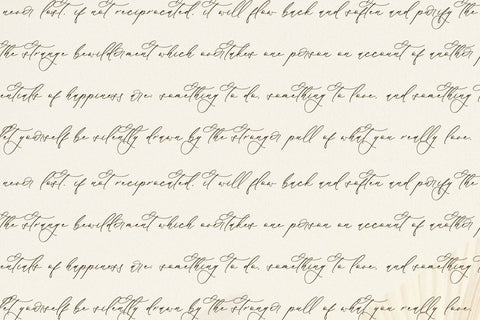 never lost. if not reciprocated, it will flow back and soften and purify the
the strange bewilderment which overtakes one person on account of another p
entials of happiness are: something to do, something to love, and something t
Let yourself be silently drawn by the stronger pull of what you really love.
never lost. if not reciprocated, it will flow back and soften and purify the
the strange bewilderment which overtakes one person on account of another p
entials of happiness are: something to do, something to love, and something t
Let yourself be silently drawn by the stronger pull of what you really love.